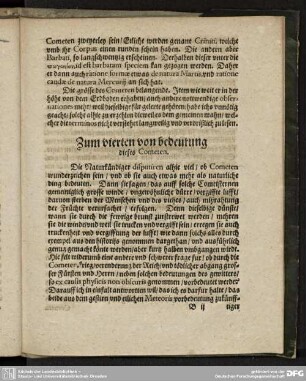 Cometen zweyerley sein / Etliche werden genant Criniti welche
umb ihr Corpus einen runden schein haben. Die andern aber
Barbati, so langschwentzig erscheinen. Derhalben dieser unter die
id est barbatum speciem kan gezogen werden. Daher
er dann auch ratione formæ etwas de natura Martis, und ratione
caudæ de natura Mercurij an sich hat.
Die grösse des Cometen belangende. Item wie weit er in der
höhe von dem Erdboden erhaben / auch andere notwendige obser-
vationes mehr / weil dieselbige für gelerte gehören / hab ich unnötig
geacht / solche alhie zu erzehlen dieweil es dem gemeinen man / wel-
cher die terminos nicht verstehet langweilig und verdrießlich zu lesen.
Zum vierten von bedeutung
dieses Cometen.
Die Naturkündiger disputiren alhie viel / ob Cometen
wunderzeichen sein / und ob sie auch etwas mehr als naturliche
ding bedeuten. Dann sie sagen / das auff solche Cometsternen
gemeinglich grosse winde / ungewöhnliche dürre / vergiffte lufft /
darvon sterben der Menschen und des viehes / auch mißrathung
der Früchte verursachet / erfolgen. Denn dieselbige dünste /
wann sie durch die fewrige brunst zurstrewet werden / mehren
sie die winde und weil sie trucken und vergifft sein / erregen sie auch
truckenheit und vergifftung der lufft / wie dann solches alles durch
exempel aus den historijs genommen dargethan / und ausführlich
genug gemacht könte werden / aber kurtz halben umbgangen wirdt.
Hie felt widerumb eine andere und schwerere frage für / ob durch die
Cometen / krieg / verenderung der Reich / und tödlicher abgang gros-
ser Fürsten und Herrn / neben solchen bedeutungen des gewitters /
so ex causis physicis non obscuris genommen / vorbedeutet werde?
Darauff ich einfalt antworten will / das ich es darfür halte / das
beide aus den gestirn und etlichen Meteoris vorbedeutung zukünff-
B ij tiger